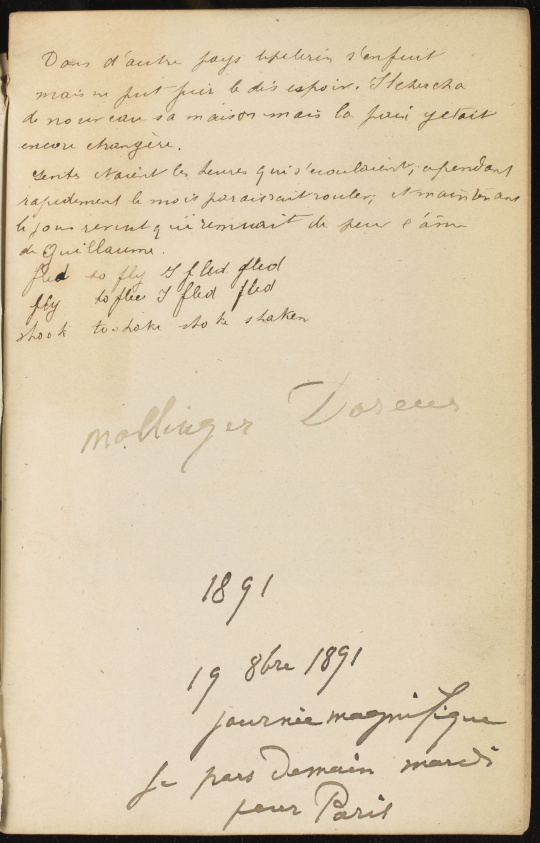 Dans d'autre pays lpelerin s'enfuit
mais ne put fuir le dés espoir. Il chercha
de nouveau sa maison mais la paix y etait
encore etrangère.
Lentes etaient les heures qui s'ecoulaient, cependant
rapidement le mois paraissait rouler, et maintenant
le jour revint qui remuait de peur l'âme
de Quillaume.
fled to fly I fled fled
fly to flee I fled fled
shook to shake shake shaken
Mollinger Doreur
1891
19 8bre 1891
journée magnifique
Je pars Demain mardi
pour Paris